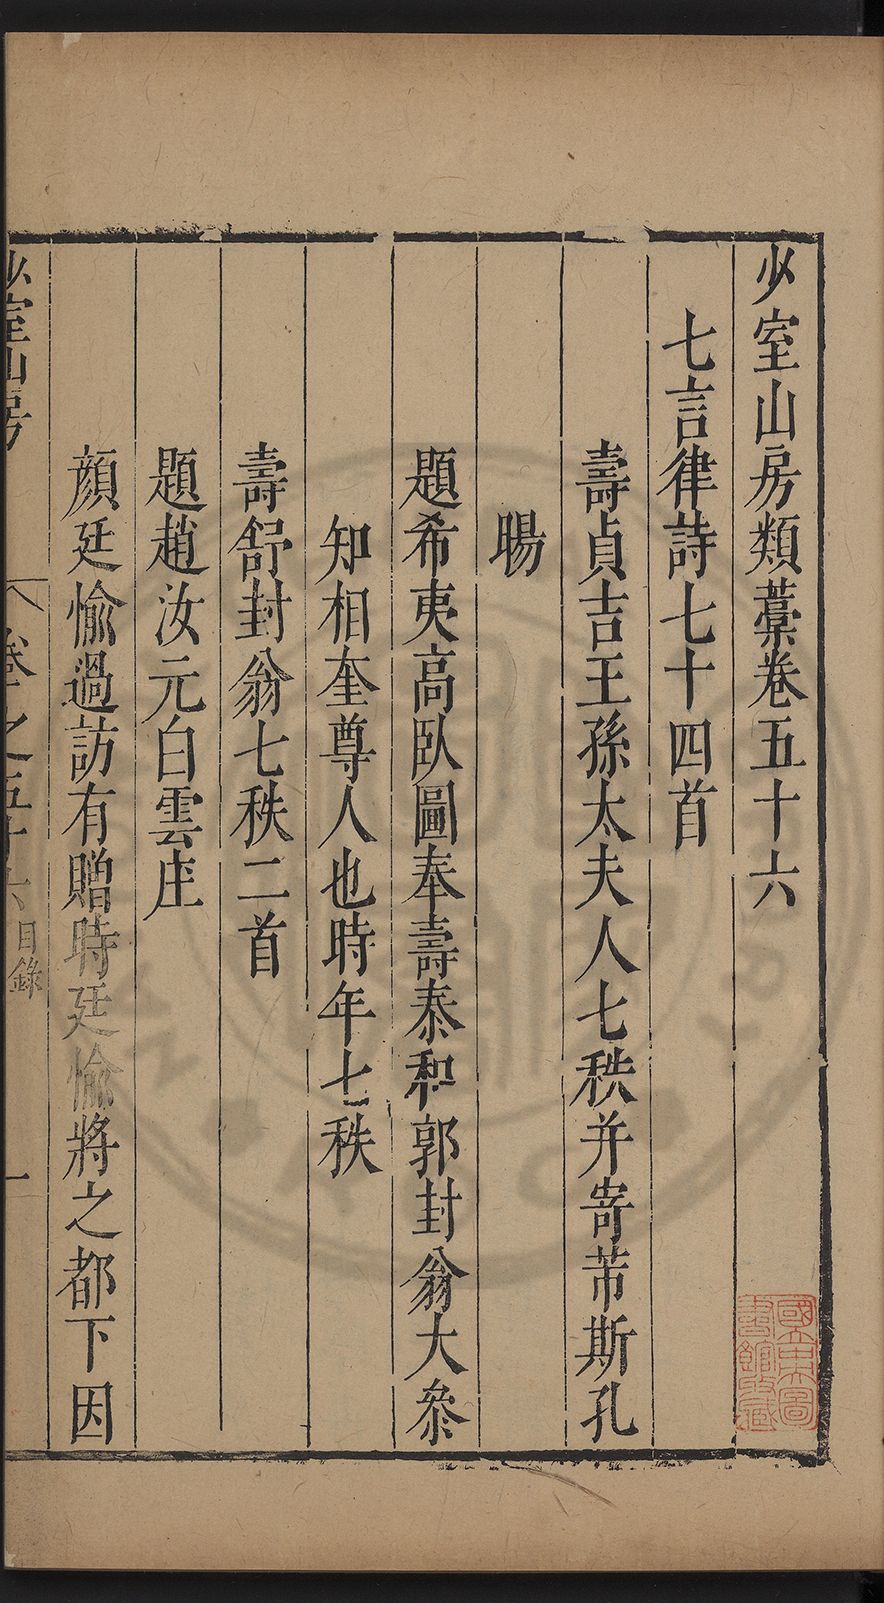 少室山房類藁卷五十六
七言律詩七十四首
壽貞吉王孫太夫人七秩并寄芾斯孔
暘
題希夷高臥圖奉壽泰和郭封翁大叅
知相奎尊人也時年七秩
壽舒封翁七秩二首
題趙汝元白雲庄
顔廷愉過訪有贈時廷愉將之都下因
少室山房
卷之五十六目錄
一
國立中央圖
書館收藏